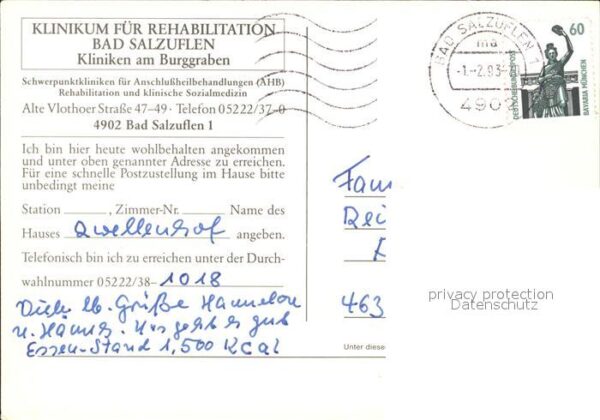 KLINIKUM FÜR REHABILITATION
BAD SALZUFLEN
Kliniken am Burggraben
Schwerpunktkliniken für Anschlußheilbehandlungen (AHB)
Rehabilitation und klinische Sozialmedizin
Alte Vlothoer Straße 47-49 · Telefon 05222/37-0
4902 Bad Salzuflen 1
Ich bin hier heute wohlbehalten angekommen
und unter oben genannter Adresse zu erreichen.
Für eine schnelle Postzustellung im Hause bitte
unbedingt meine
Station , Zimmer-Nr. Name des
Hauses Quellenhof angeben.
Telefonisch bin ich zu erreichen unter der Durch-
wahlnummer 05222/38-1018
Viele lb. Grüße Hannelore
u. Hannes. Uns geht es gut
Essen-Stand 1,500 Kcal
BAD SALZUFLEN 1
ma
-1.-2.93-
4902
60
DEUTSCHE BUNDESPOST
BAVARIA MÜNCHEN
Fam
Rei
463
privacy protection
Datenschutz
Unter diese